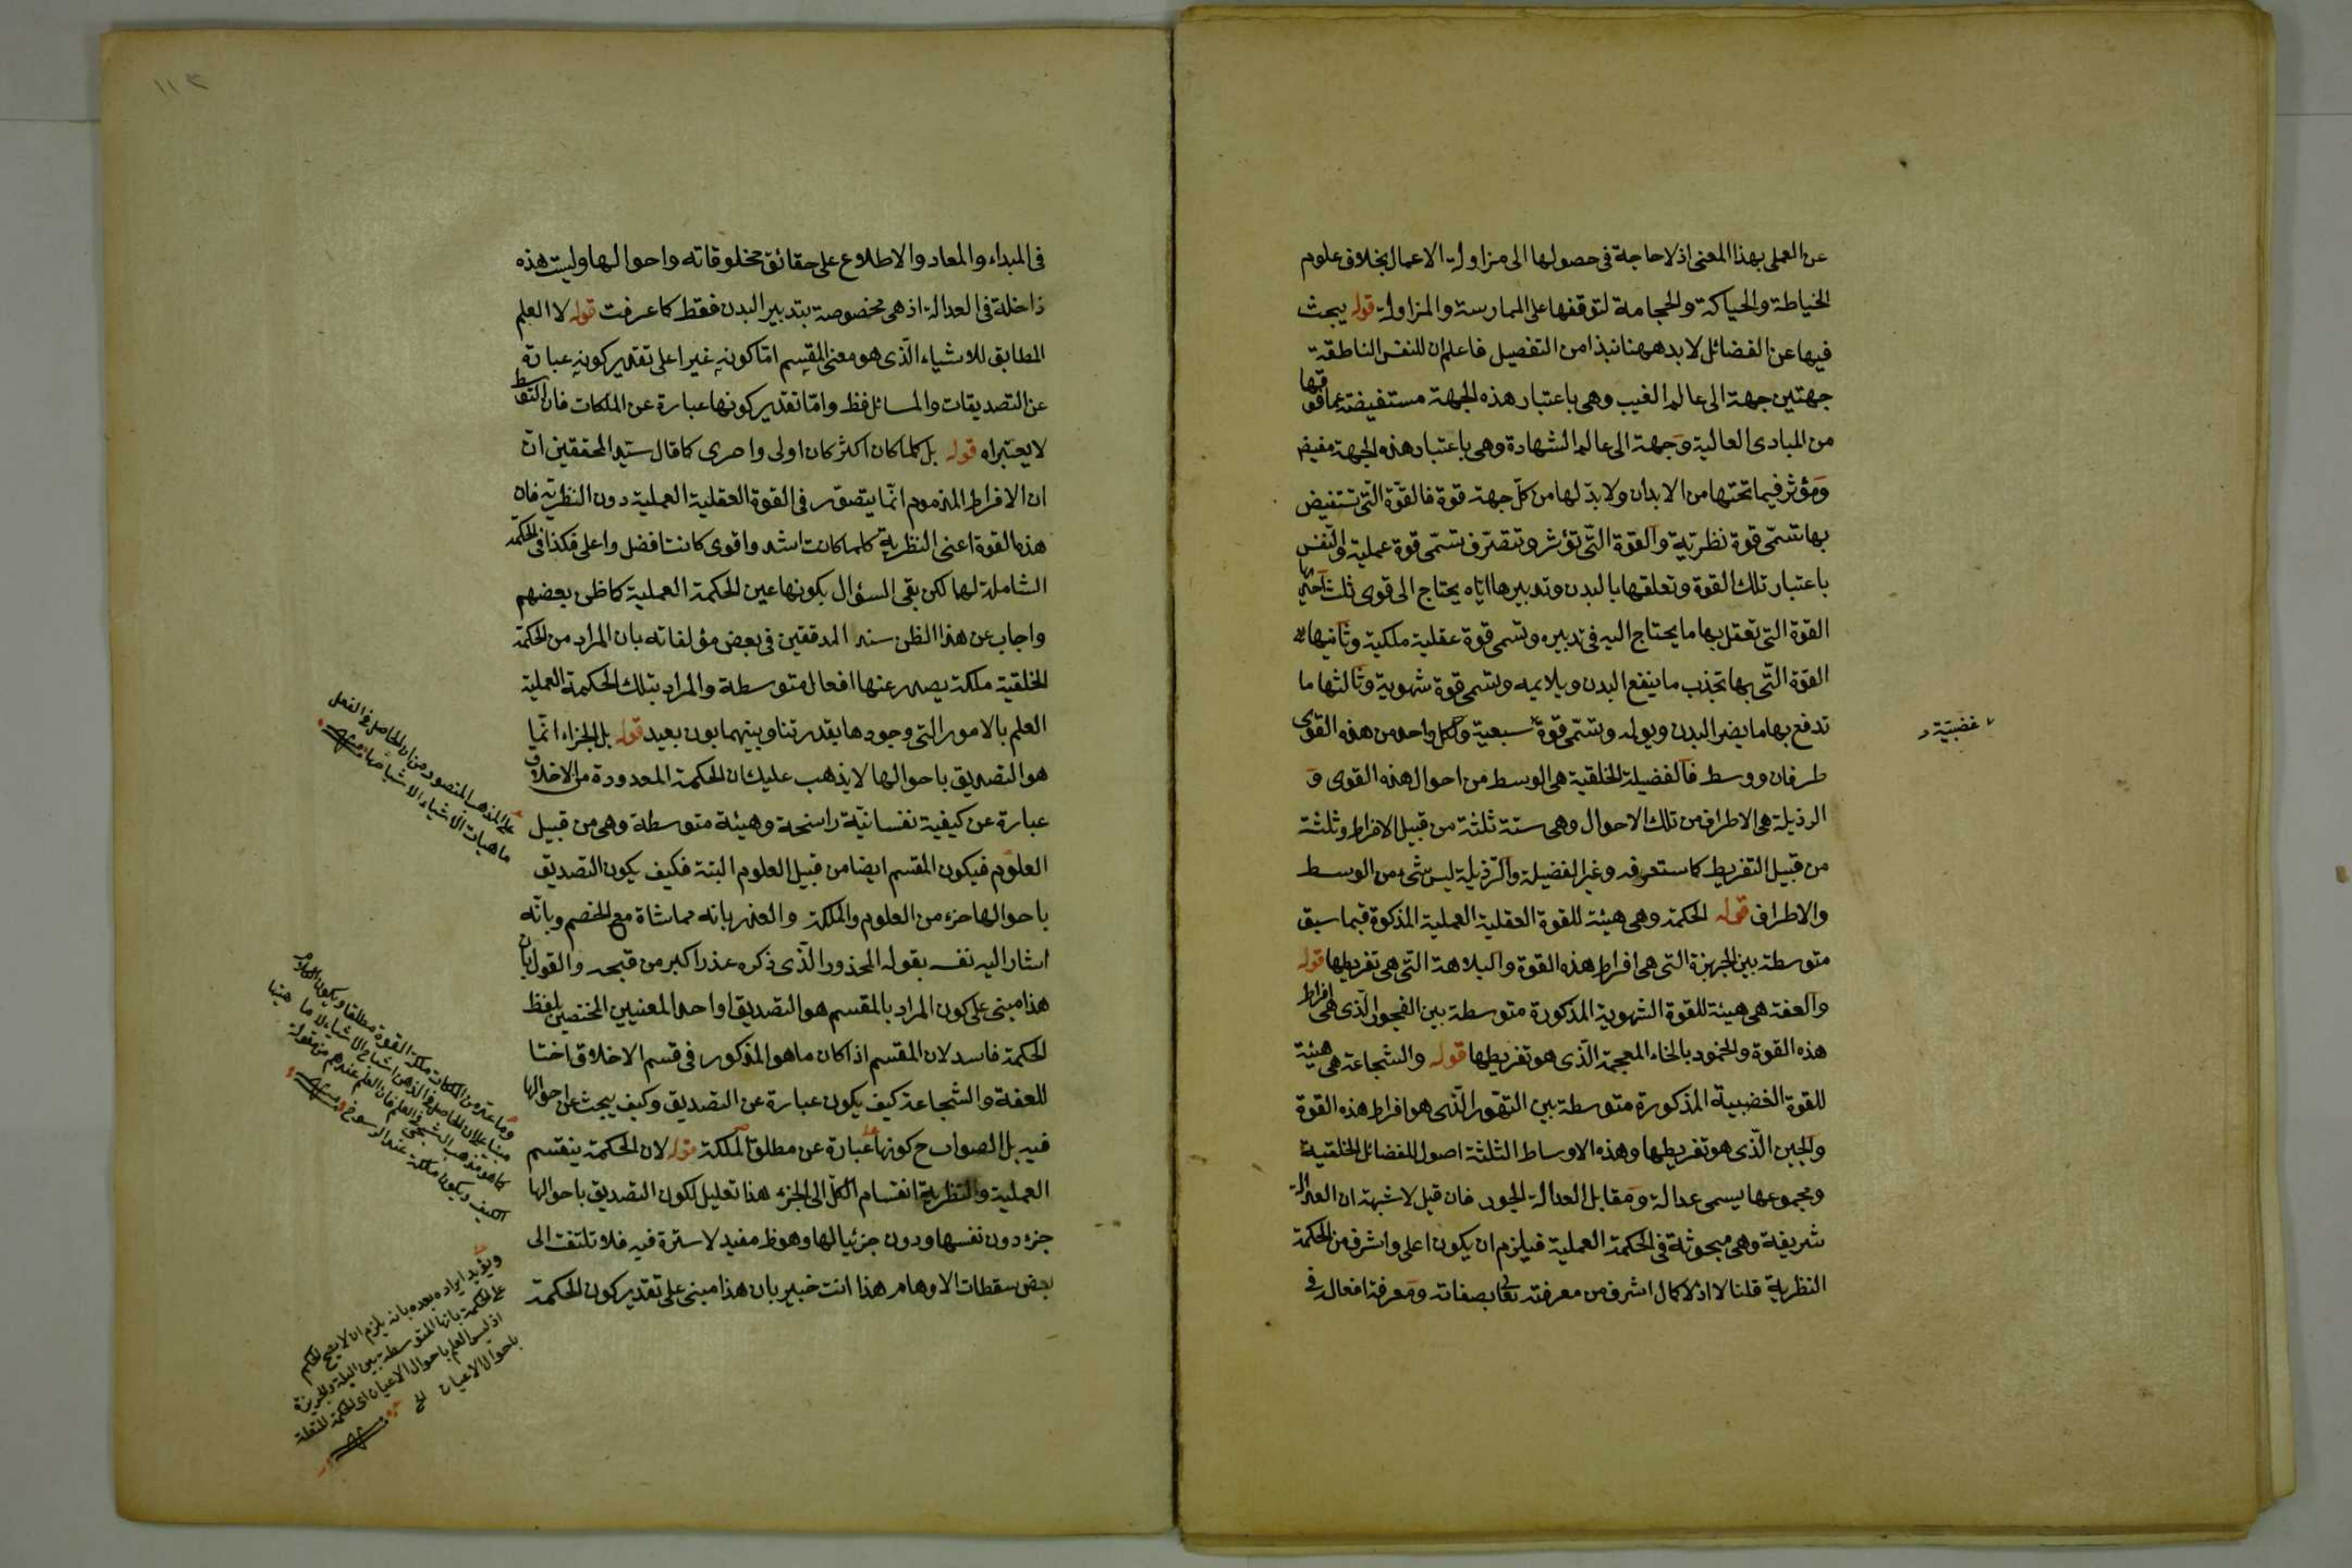 عن العملى بهذا المعنى اذ لا حاجة فى حصولها الى مزاولة الاعمال بخلاف علوم
الخياطة والحياكة والحجامة لتوقفها على الممارسة والمزاولة قوله يبحث
فيها عن الفضائل لا بد ههنا نبذا من التفصيل فاعلم ان للنفس الناطقة
جهتين جهة الى عالم الغيب وهى باعتبار هذه الجهة مستفيضة عما فوقها
من المبادى العالية وجهة الى عالم الشهادة وهى باعتبار هذه الجهة مفيض
ومؤثر فيما تحتها من الابدان ولا بد لها من كل جهة قوة فالقوة التى تستفيض
بها تسمى قوة نظرية والقوة التى تؤثر وتتصرف تسمى قوة عملية والنفس
باعتبار تلك القوة وتعلقها بالبدن وتدبيرها اياه يحتاج الى قوى ثلث احديها
القوة التى تعقل بها ما يحتاج اليه فى تدبيره وتسمى قوة عقلية ملكية وثانيها
القوة التى بها تجذب ما ينفع البدن ويلايمه وتسمى قوة شهوية وثالثها ما
تدفع بها ما يضر البدن ويولمه وتسمى قوة سبعية ولكل واحد من هذه القوى
غضبية
طرفان ووسط فالفضيلة الخلقية هى الوسط من احوال هذه القوى و
الرذيلة هى الاطراف من تلك الاحوال وهى ستة ثلثة من قبيل الافراط وثلثة
من قبيل التفريط كما ستعرفه وغير الفضيلة والرذيلة ليس شئ من الوسط
والاطراف قوله الحكمة وهى هيئة للقوة العقلية العملية المذكوة فيما سبق
متوسطة بين الجربزة التى هى افراط هذه القوة والبلاهة التى هى تفريطها قوله
والعفة هى هيئة للقوة الشهوية المذكورة متوسطة بين الفجور الذى هى افراط
هذه القوة والخمود بالخاء المعجمة الذى هو تفريطها قوله والشجاعة هى هيئة
للقوة الغضبية المذكورة متوسطة بين التهور الذى هو افراط هذه القوة
والجبن الذى هو تفريطها وهذه الاوساط الثلثة اصول للفضائل الخلقية
ومجموعها يسمى عدالة ومقابل العدالة الجور فان قيل لا شبهة ان العدالة
شريفة وهى مبحوثة فى الحكمة العملية فيلزم ان يكون اعلى واشرف من الحكمة
النظرية قلنا لا اذ لا كمال اشرف من معرفته تعالى بصفاته ومعرفة افعاله فى
فى المبداء والمعاد والاطلاع على حقائق مخلوقاته واحوالها وليست هذه
داخلة فى العدالة اذ هى مخصوصة بتدبير البدن فقط كما عرفت قوله لا العلم
المطابق للاشياء الذى هو معنى المقسم اما كونه غيرا على تقدير كونه عبارة
عن التصديقات والمسائل فظ واما تقدير كونها عبارة عن الملكات فان التوسط
لا يعتبراه قوله بل كلما كان اكثر كان اولى واحرى كما قال سيد المحققين ان
ان الافراط المذموم انما يتصور فى القوة العقلية العملية دون النظرية فان
هذه القوة اعنى النظرية كلما كانت اشد واقوى كانت افضل واعلى فكذا فى الحكمة
الشاملة لها لكن بقى السؤال بكونها عين الحكمة العملية كما ظن بعضهم
واجاب عن هذا الظن سند المدققين فى بعض مؤلفاته بان المراد من الحكمة
الخلقية ملكة يصدر عنها افعال متوسطة والمراد بتلك الحكيمة العملية
العلم بالامور التى وجودها بقدرتنا وبينهما بون بعيد قوله بل الجزاء انما
هو التصديق باحوالها لا يذهب عليك ان الحكمة المعدودة من الاخلاق
عبارة عن كيفية نفسانية راسخة وهيئة متوسطة وهى من قبيل
العلوم فيكون المقسم ايضا من قبيل العلوم البتة فكيف يكون التصديق
باحوالها جزء من العلوم والملكة والعذر بانه مماشاة مع الخصم وبانه
اشار اليه نفسه بقوله المحذور الذى ذكره عذر اكبر من قبحه والقول بان
هذا مبنى على كون المراد بالمقسم هو التصديق او احد المعنيين المختصين بلفظ
الحكمة فاسد لان المقسم اذا كان ما هو المذكور فى قسم الاخلاق
للعفة والشجاعة كيف يكون عبارة عن التصديق وكيف يبحث عن احوالها
فيه بل الصواب ح كونها عبارة عن مطلق الملكة قوله لان الحكمة ينقسم
العملية والنظرية انقسام الكل الى الجزء هذا تعليل لكون التصديق باحوالها
جزء دون نفسها ودون جزئيا لها وهو ظ مفيد لا سترة فيه فلا تلتفت الى
بعض سقطات الاوهام هذا انت خبير بان هذا مبنى على تقدير كون الحكمة
على المذهب المنصور من ان الحاصل فى العقل
ماهيات الاشياء لا اشباحها
وما عدّ من الملكات ملكة القوة مطلقا ويكون
مبنيا على ان الحاصل فى الذهن اشباح الاشياء لا ماهيتها
كما هو مذهب الشبحى فالعلم عندهم من مقولة
الكيف ويكون ملكة عند الرسوخ
ويؤيد ايراده بعده بانه يلزم ان لا يصح الحكم
على الحكمة بانها المتوسطة بين البله والجربزة
اذ ليس العلم باحوال الاعيان اى الحكمة المتعلقة
باحوال الاعيان الخ